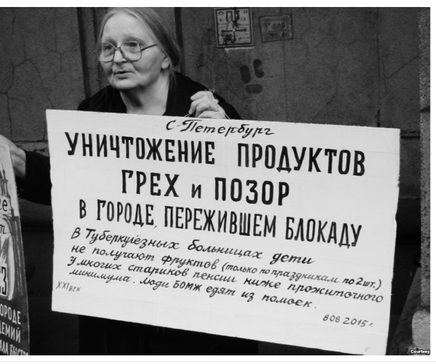 С-Петербург
УНИЧТОЖЕНИЕ ПРОДУКТОВ
ГРЕХ и ПОЗОР
В ГОРОДЕ, ПЕРЕЖИВШЕМ БЛОКАДУ
В Туберкулёзных больницах дети
не получают фруктов (только по праздникам по 2 шт.)
У многих стариков пенсии ниже прожиточного
минимума. Люди БОМЖ едят из помоек.
XXI век
8 08 2015 г
ГОРОДЕ
Courtesy